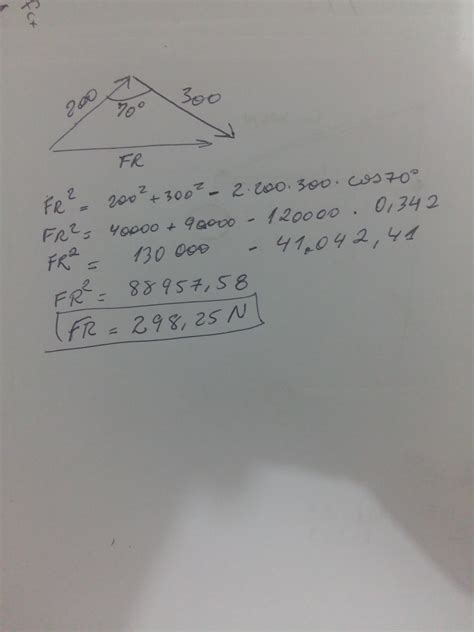 200 70° 300
FR
FR² = 200² + 300² - 2.200.300.cos70°
FR² = 40000 + 90000 - 120000 . 0,342
FR² = 130 000 - 41.042,41
FR² = 88957,58
FR = 298,25 N